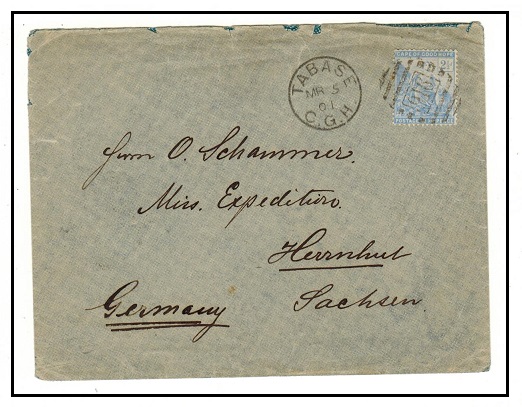 CAPE OF GOOD HOPE
2½
POSTAGE
TABASE
MR 5
01
C.G.H.
Herrn O. Schammer.
Miss. Expedition.
Herrnhut
Germany
Sachsen.